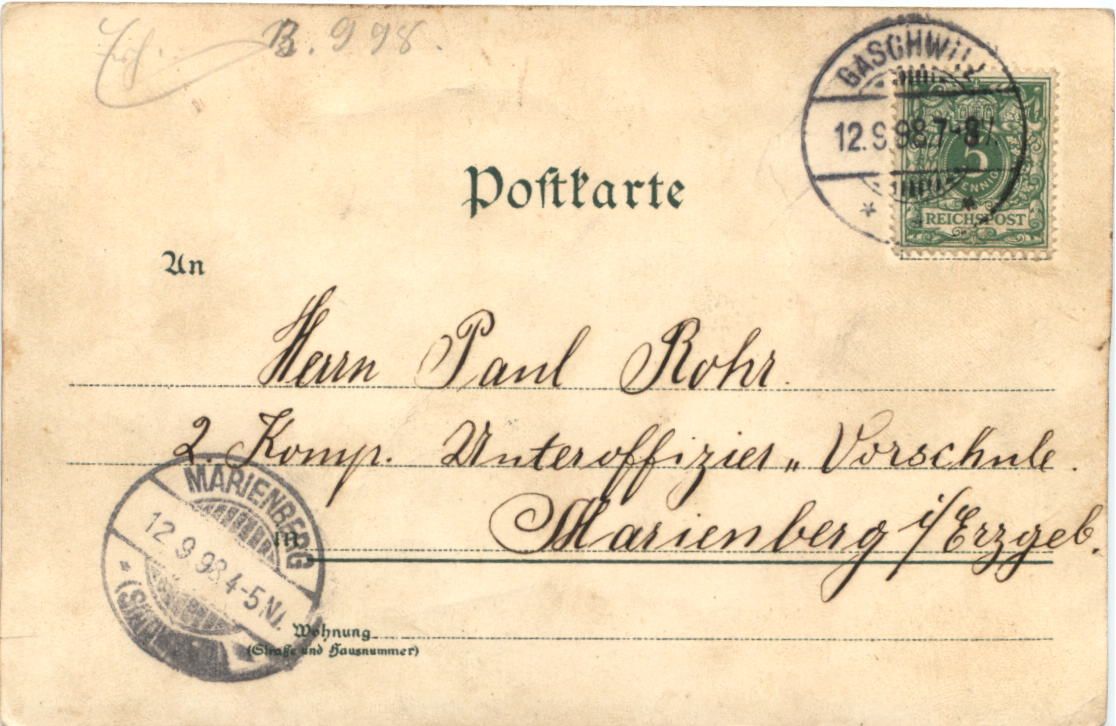 B. 9 98.
GASCHWITZ
12.9.98.7-8V.
5
PFENNIG
REICHSPOST
Postkarte
An
Herrn Paul Rohr.
2. Komp. Unteroffizier„ Vorschule.
in Marienberg i/Erzgeb.
MARIENBERG
12 9 98 4-5N.
Wohnung
(Straße und Hausnummer)